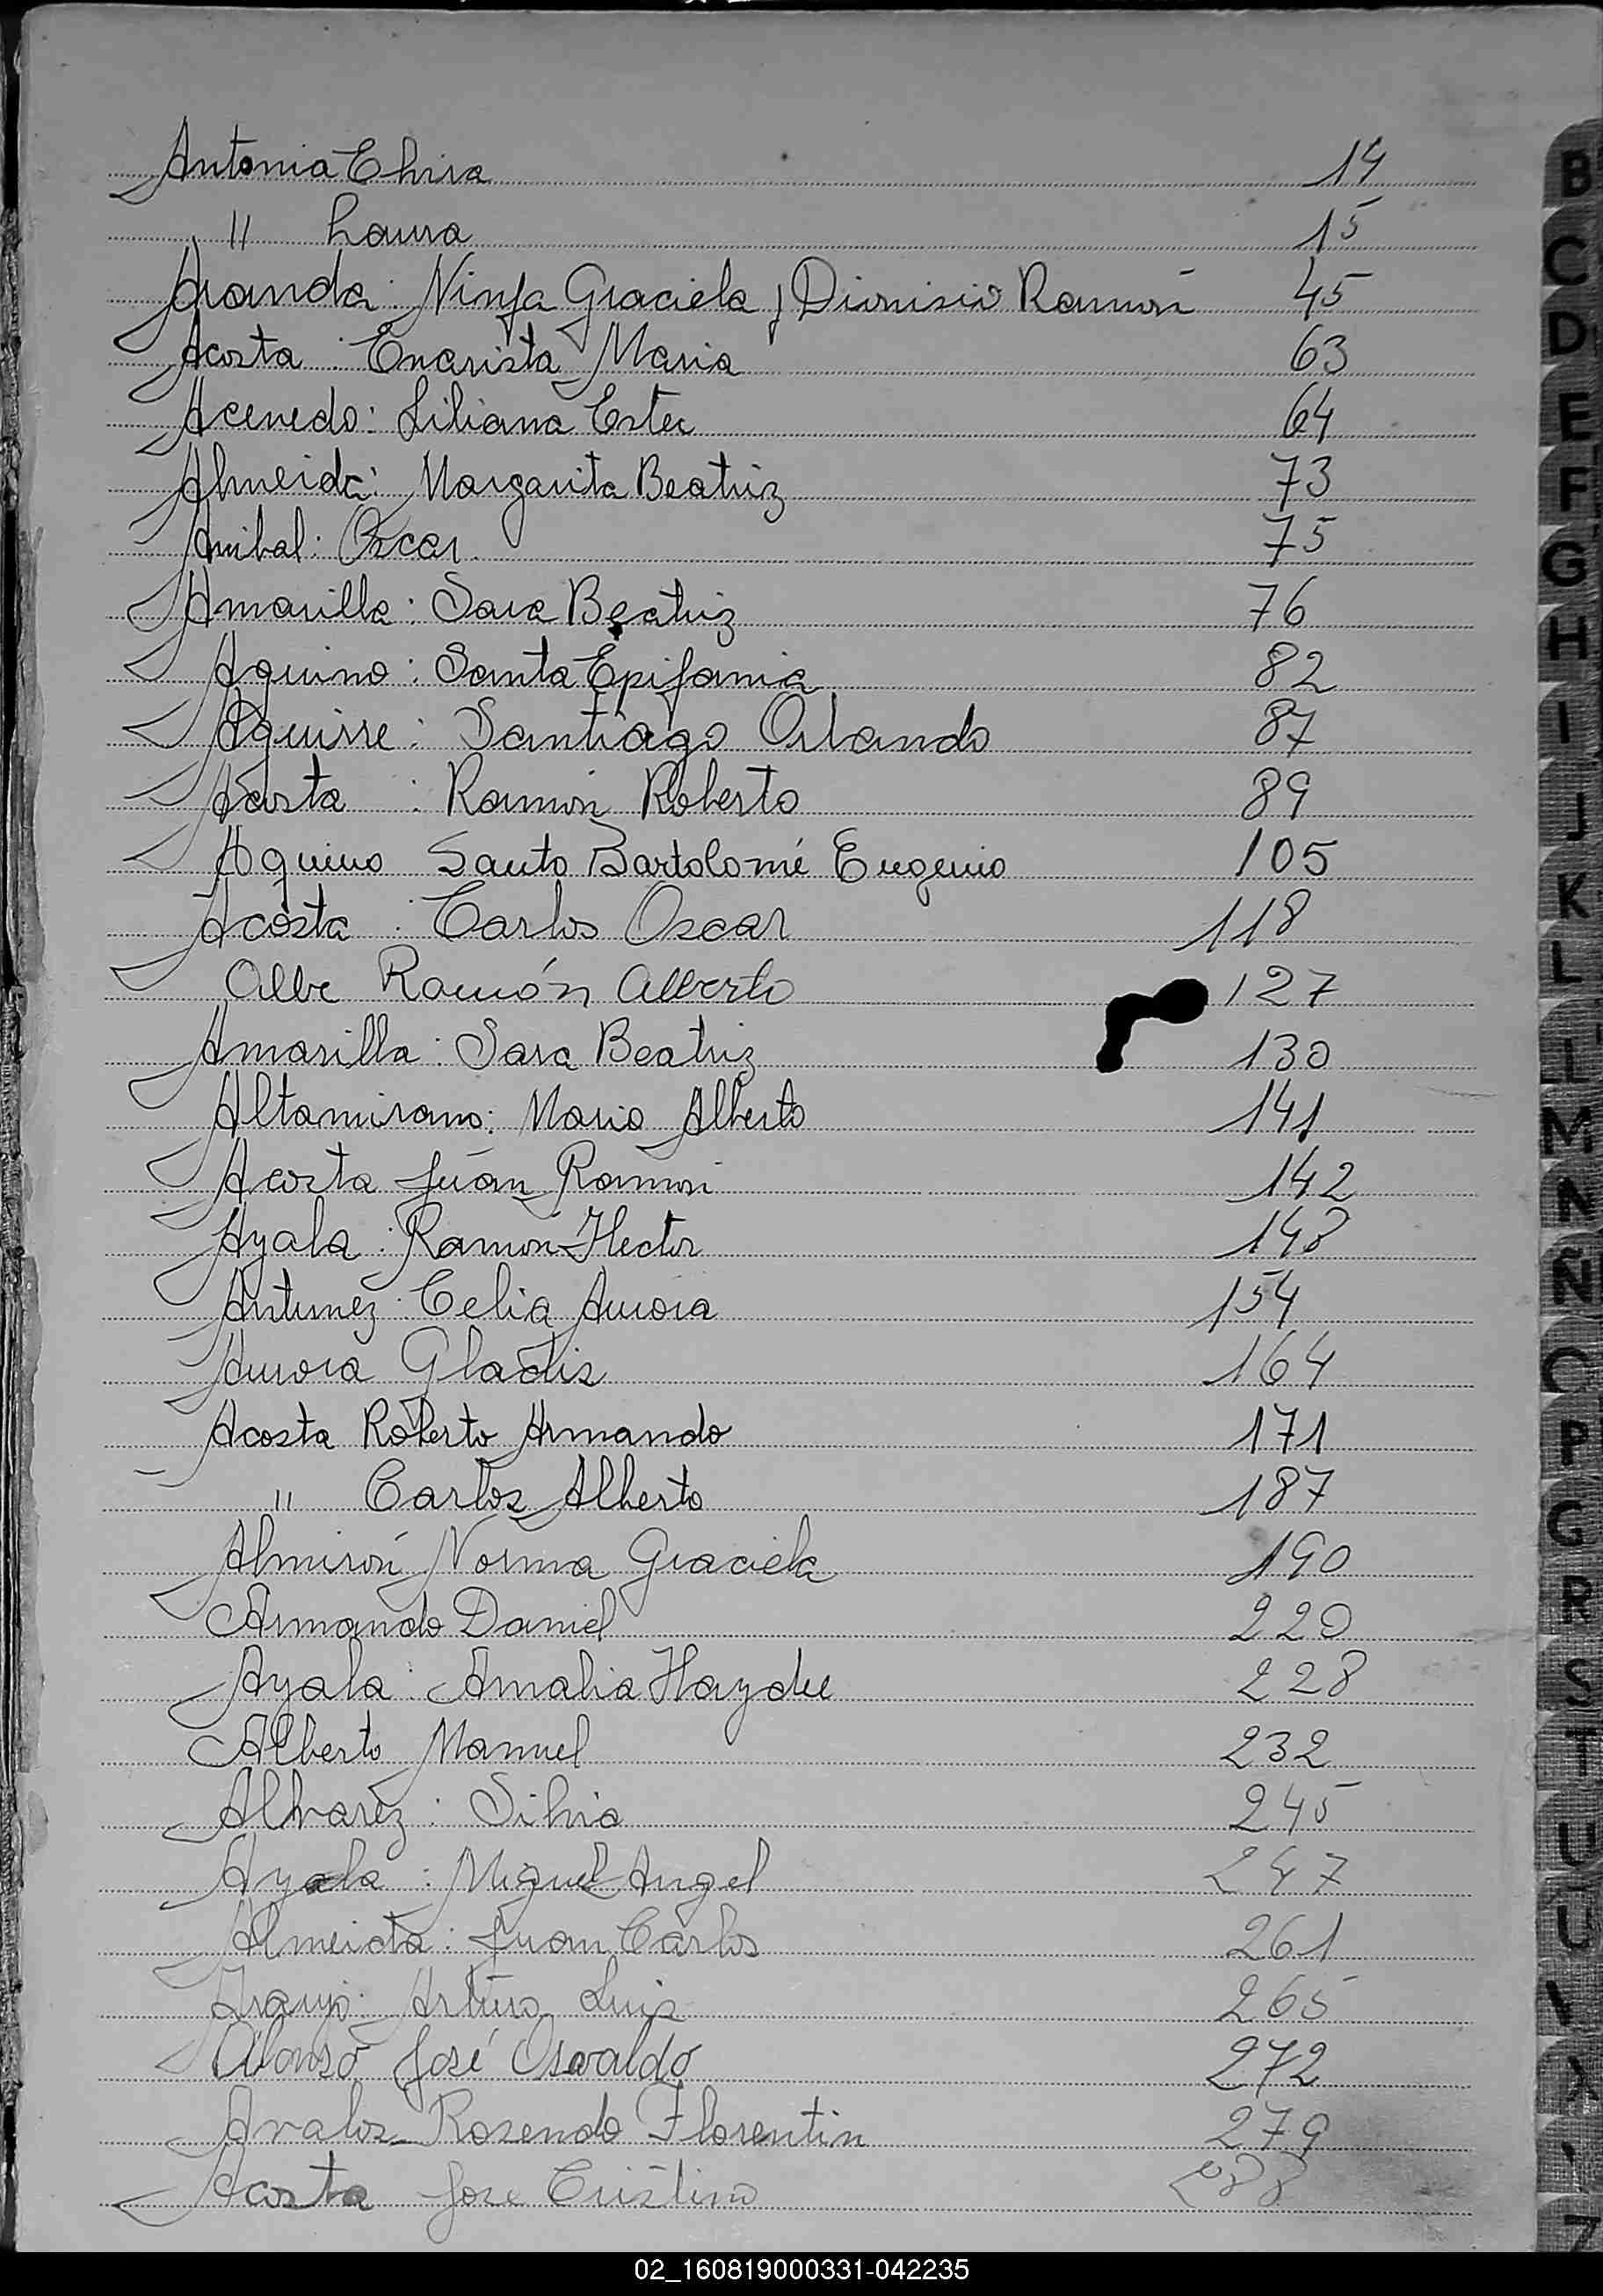 Antonia Elvira 14
" Laura 15
Aranda: Ninfa Graciela y Dionisio Ramón 45
Acosta: Evarista Maria 63
Acevedo: Liliana Ester 64
Almeida: Margarita Beatriz 73
Anibal: Oscar 75
Amarilla: Sara Beatriz 76
Aquino: Santa Epifania 82
Aguirre: Santiago Orlando 87
Acosta: Ramón Roberto 89
Aquino Santo Bartolomé Eugenio 105
Acosta: Carlos Oscar 118
Albe Ramón Alberto 127
Amarilla: Sara Beatriz 130
Altamirano: Mario Alberto 141
Acosta Juan Ramón 142
Ayala: Ramón Hector 148
Antunez: Celia Aurora 154
Aurora Gladis 164
Acosta Roberto Armando 171
" Carlos Alberto 187
Almirón Norma Graciela 190
Armando Daniel 220
Ayala: Amalia Haydee 228
Alberto Manuel 232
Alvarez: Silvia 245
Ayala: Miguel Angel 247
Almeida: Juan Carlos 261
Araujo: Arturo Luis 265
Alonso José Osvaldo 272
Avalos Rosendo Florentin 279
Acosta Jose Cristino 288
B
C
D
E
F
G
H
I
J
K
L
M
N
Ñ
O
P
R
S
T
U
Z
02_160819000331-042235